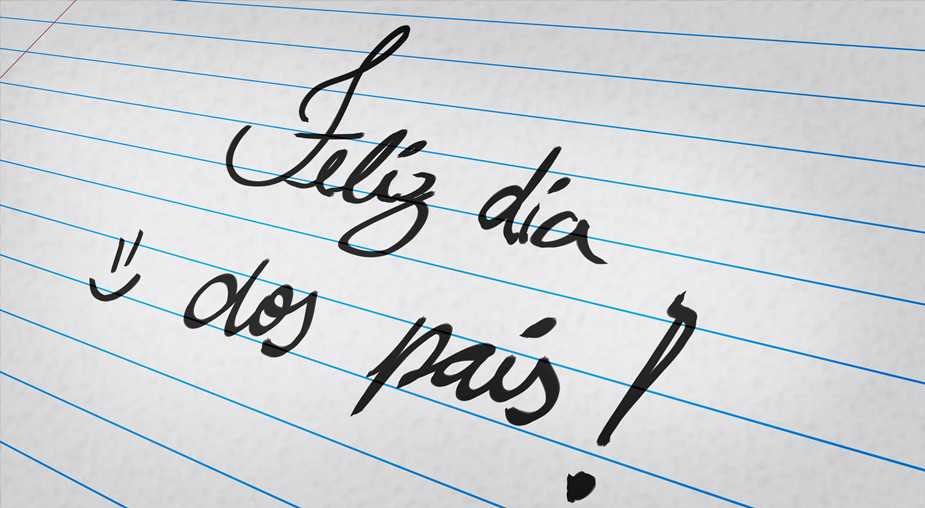 Feliz dia
dos pais!